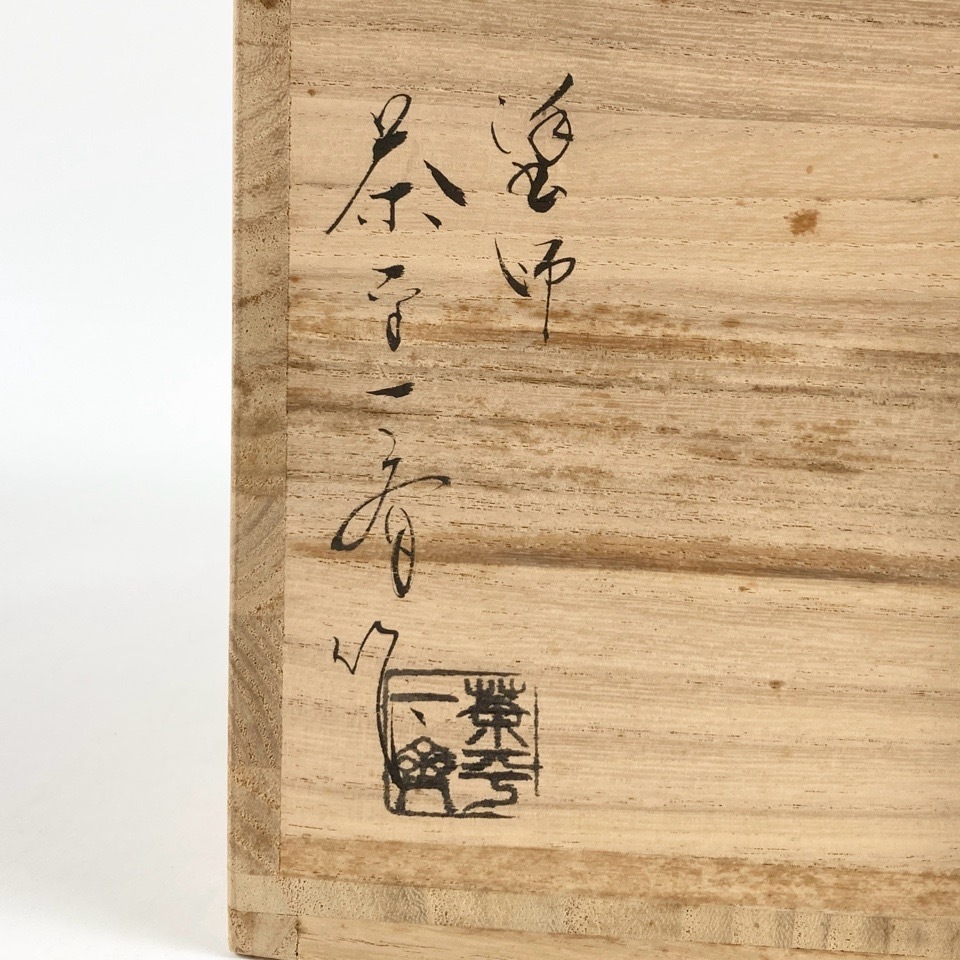 塗師
茶平一斎作
茶平
一斎